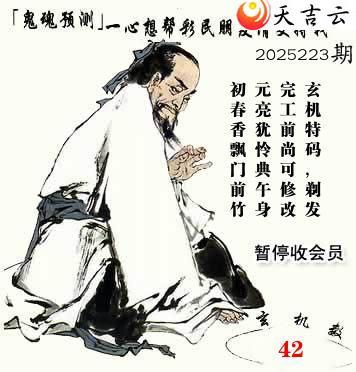 天吉云
「鬼魂预测」一心想帮彩民朋友
2025223期
玄机特码，剃发
完工前尚可修改
元亮犹怜典午身
初春香飘门前竹
暂停收会员
玄机数
42